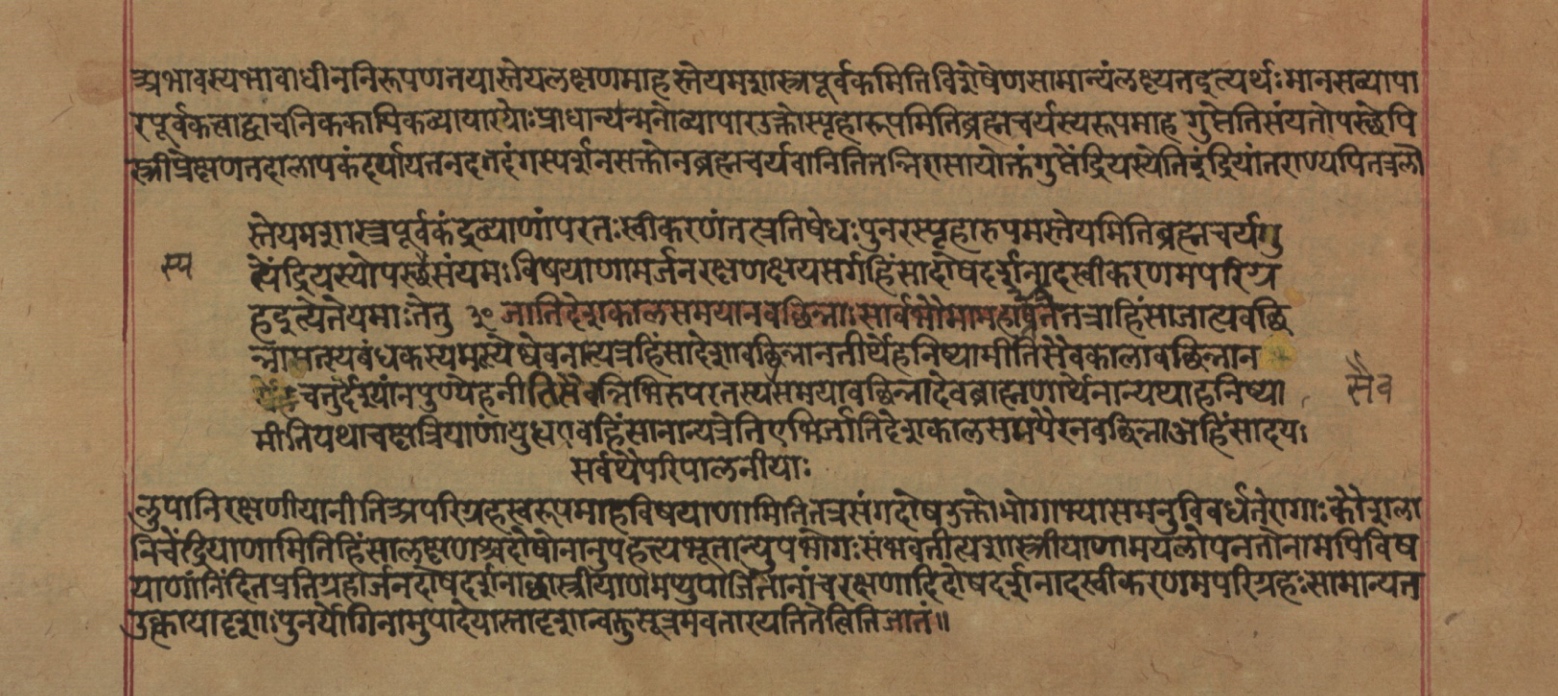 अभावस्यभावाधीननिरूपणतयास्तेयलक्षणमाहस्तेयमशास्त्रपूर्वकमितिविशेषेणसामान्यंलक्ष्यतइत्यर्थः मानसव्यापा
रपूर्वकत्वाद्वाचनिककायिकव्यापारयोः प्राधान्यन्मनोव्यापारउक्तोस्पृहारूपमितिब्रह्मचर्यस्यरूपमाह गुप्तेतिसंयतोपस्छेपि
स्त्रीप्रेक्षणतदालापकंदर्पायतनतदंगस्पर्शनसक्तोनब्रह्मचर्यवानितितन्निरासायोक्तंगुप्तेंद्रियस्येतिइंद्रियांतराण्यपितत्रलो
स्तेयमशास्त्रपूर्वकंद्रव्याणांपरतःस्वीकरणंतत्प्रतिषेधःपुनरस्पृहारुपमस्तेयमितिब्रह्मचर्यगु
स्य
प्तेंद्रियस्योपस्छसंयमःविषयाणामर्जनरक्षणक्षयसर्गहिंसादोषदर्शनादस्वीकरणमपरिग्र
हइत्येतेयमाःतेतु ३० जातिदेशकालसमयानवछिन्नाःसार्वभौमामहाव्रतंतत्राहिंसाजात्यवछि
न्नामत्स्यबंधकस्यमत्स्येष्वेवनान्यत्रहिंसादेशावछिन्नानतीर्थेहनिष्यामीतिसैवकालावछिन्नान
चतुर्दश्यांनपुण्येहनीतिसैवत्रिभिरुपरतस्यसमयावछिन्नादेवब्राह्मणार्थेनान्यथाहनिष्या
सैव
मीतियथाचक्षत्रियाणांयुधएवहिंसानान्यत्रेतिएभिर्जातिदेशकालसमयैरनवछिन्नाअहिंसादयः
सर्वथैपरिपालनीयाः
लुपानिरक्षणीयानीतिअपरिग्रहस्वरूपमाहविषयाणामितितत्रसंगदोषउक्तोभोगाभ्यासमनुविवर्धतेरागाः कौशला
निचेंद्रियाणामितिहिंसालक्षणअदोषोनानुपहत्यभूतान्युपभोगःसंभवतीत्यशास्त्रीयाणामयत्नोपनतानामपिविष
याणांनिंदितप्रतिग्रहार्जनदोषदर्शनाछास्त्रीयाणमप्युपार्जितानांचरक्षणादिदोषदर्शनादस्वीकरणमपरिग्रहःसामान्यत
उक्तायादृशाःपुनर्योगिनामुपादेयास्तादृशान्वक्तुसूत्रमवतारयतितेत्वितिजातं॥